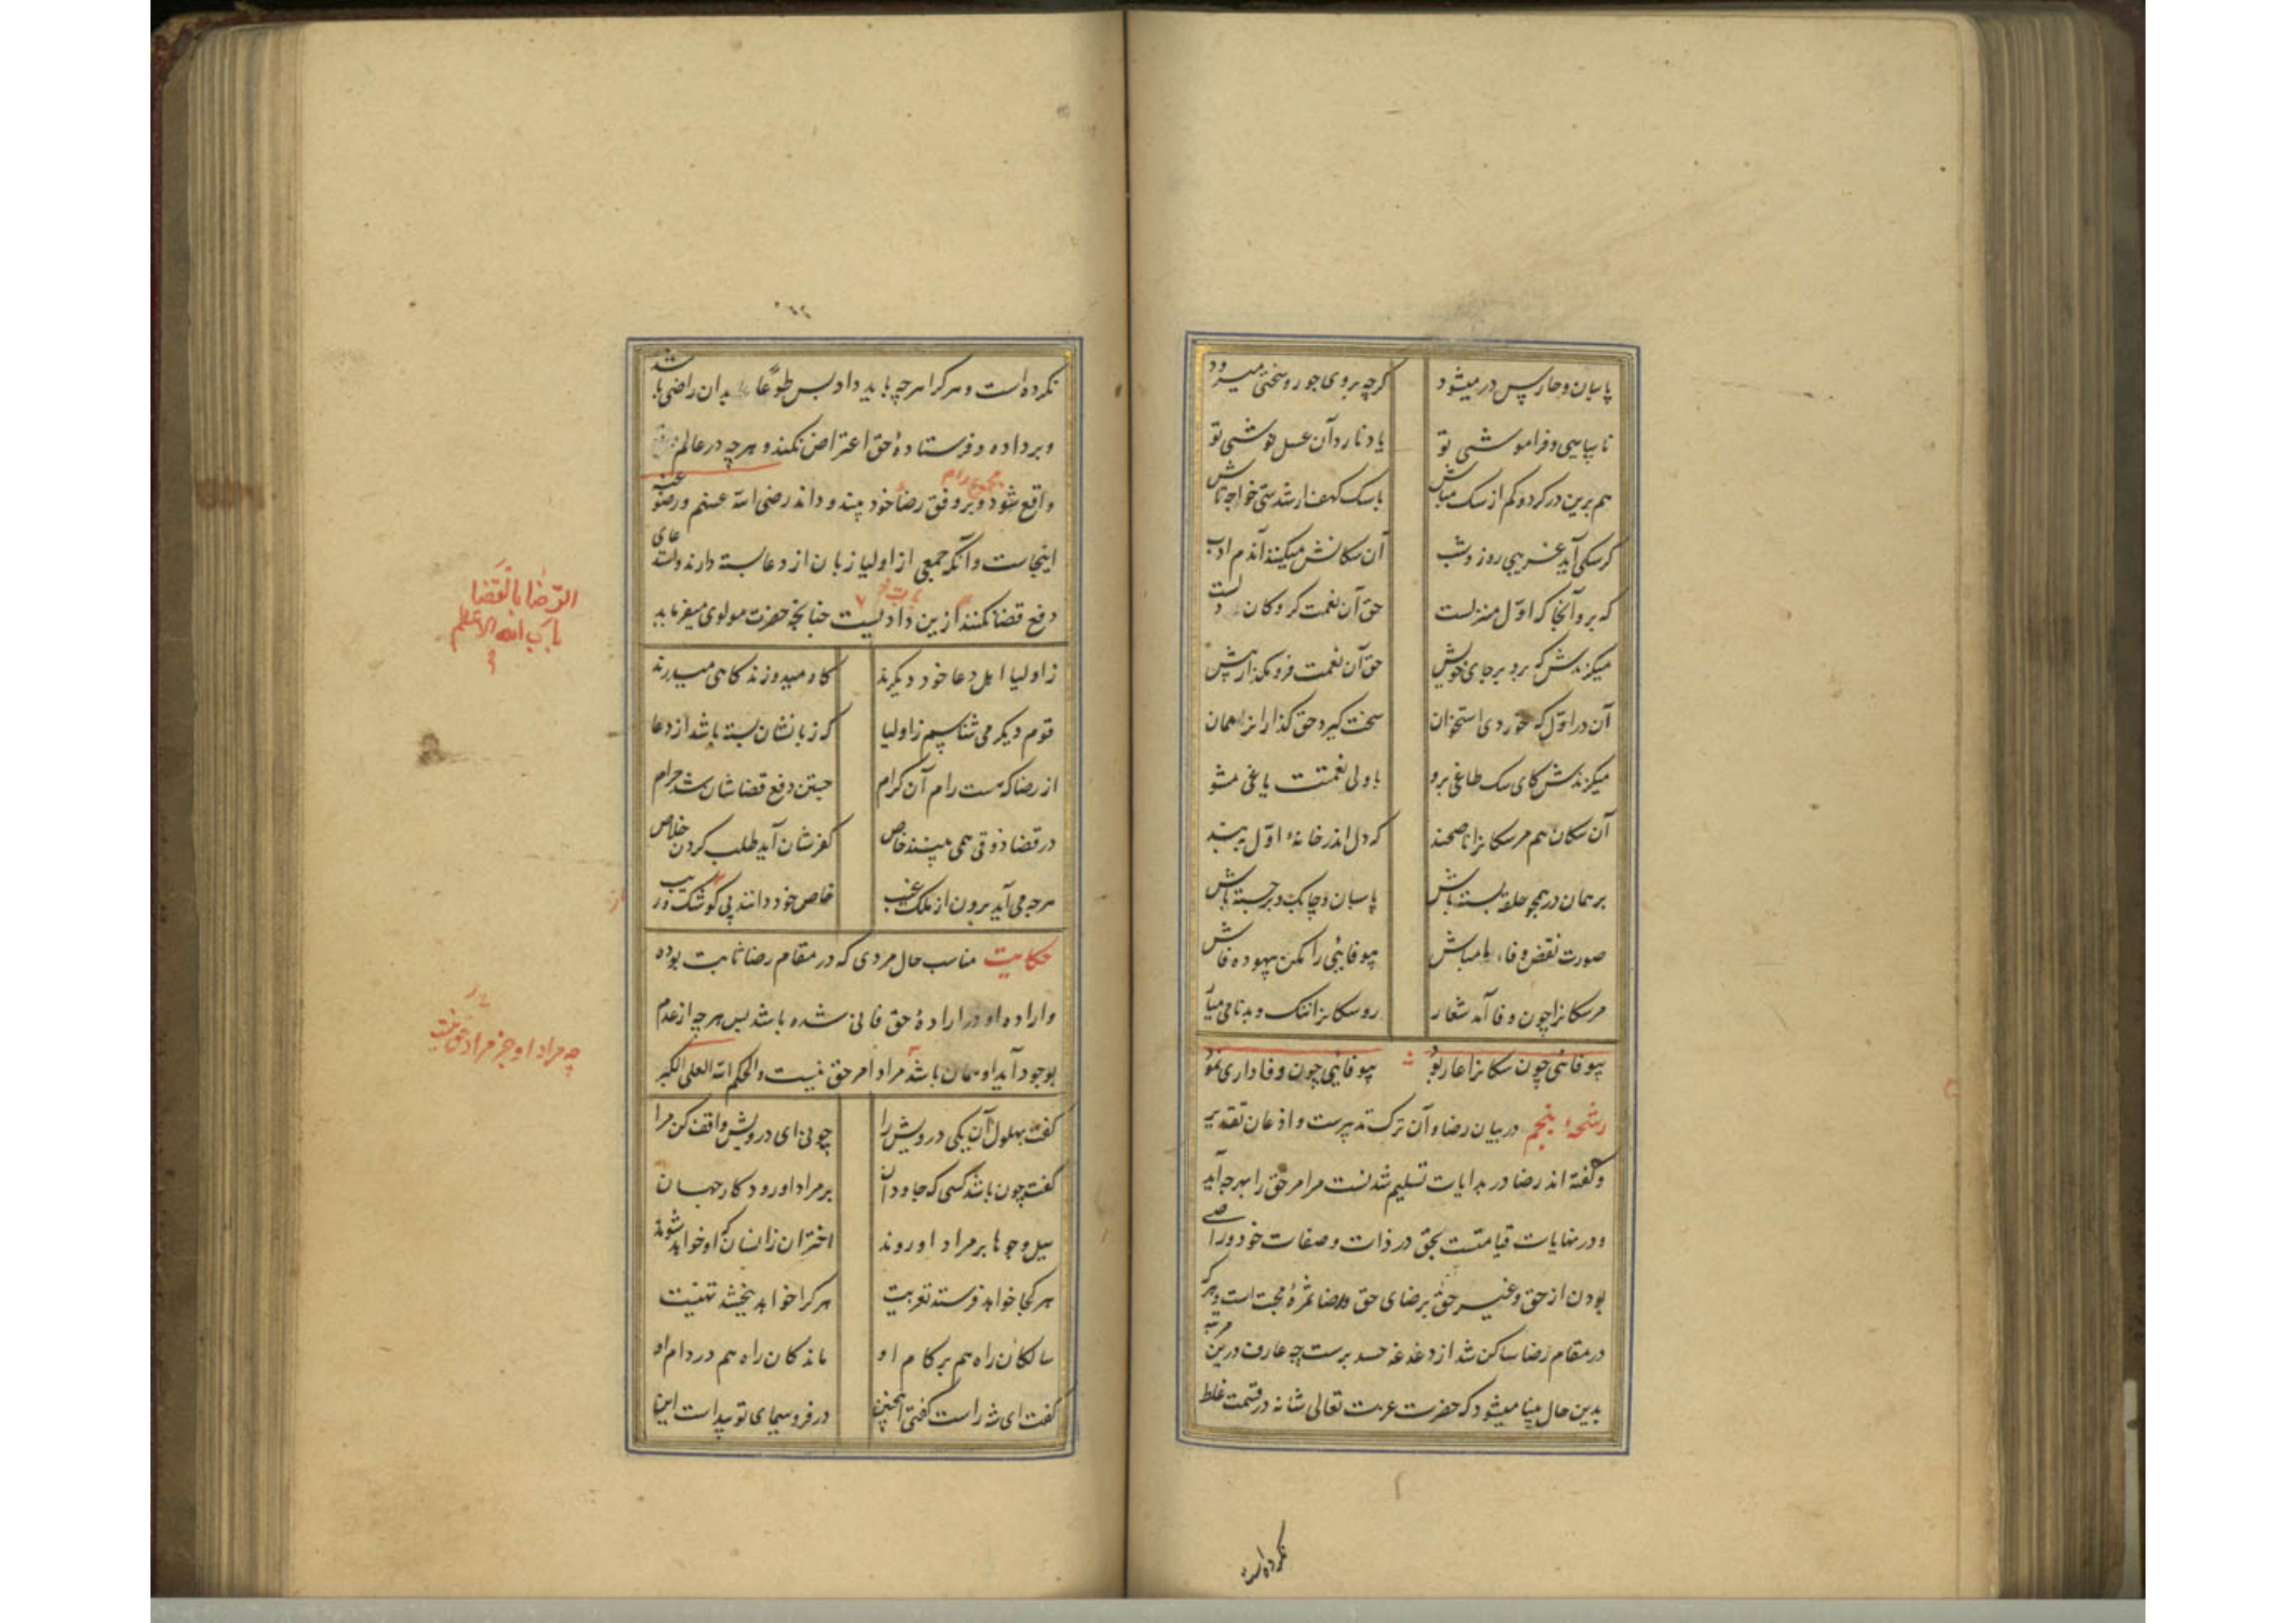 پاسبان و حارس در میشود
کرچه بر وی جور و سختی میرود
ناسپاسی و فراموشی تو
یاد نارد آن عسل نوشی تو
هم برین در کرد و کم از سک مباش
با سک کهف ار شدستی خواجه تاش
کر سکی آید غریبی روز و شب
آن سکانش میکنند آندم ادب
که برو آنجا که اول منزلست
حق آن نعمت کروکان دلست
میکزندش که برو بر جای خویش
حق آن نعمت فرو مکذار پیش
آن در اول که خوردی استخوان
سخت کیر و حق کذار انرا ممان
میکزندش کای سک طاغی برو
با ولی نعمتت یاغی مشو
آن سکان هم مر سکانرا ناصحند
که دل اندر خانهٔ اول ببند
بر همان در همچو حلقه بسته باش
پاسبان و چابک و برجسته باش
صورت نقض وفا ما مباش
بیوفایئی را مکن بیهوده فاش
مر سکانرا چون وفا آمد شعار
رو سکانرا ننک و بدنامی میار
بیوفائی چون سکانرا عار بود
بیوفایئی چون وفاداری نمود
رشحهٔ پنجم در بیان رضا و آن ترک تدبیرست و اذعان تقدیر
و کفته اند رضا در بدایات تسلیم شدنست مر امر حق را بهرچه آید
و در نهایات قیامتست بحق در ذات و صفات خود و راضی
بودن از حق و غیر حق برضای حق و رضا ثمرهٔ محبت است و هر که
در مقام رضا ساکن شد از دغدغه حسد برست چه عارف درین مرتبه
بدین حال بینا میشود که حضرت عزت تعالی شانه در قسمت غلط
نکرده است
نکرده است و هر کرا هرچه باید داد پس طوعا بدان راضی باشد
و بر داده و فرستادهٔ حق اعتراض نکند و هرچه در عالم
واقع شود و بر وفق رضاء خود بیند و داند رضی الله عنهم و رضوا عنه
اینجاست و آنکه جمعی از اولیا زبان از دعا بسته دارند و استدعای
دفع قضا نکنند ازین داد نیست چنانچه حضرت مولوی میفرماید
ز اولیا اهل دعا خود دیکرند
کاه میدوزند کاهی میدرند
قوم دیکر می شناسیم ز اولیا
که زبانشان بسته باشد از دعا
از رضا که هست رام آن کرام
جستن دفع قضاشان شد حرام
در قضا ذوقی همی بینند خاص
کفرشان آید طلب کردن خلاص
هرچه می آید برون از ملک غیب
خاص خود دانند بی کو شک و ریب
حکایت مناسب حال مردی که در مقام رضا ثابت بوده
و اراده او در ارادهٔ حق فانی شده باشد پس هرچه از عدم
بوجود آید او همان باشد مراد امر حق نیست و الحکم لله العلی الکبیر
کفت بهلول آن یکی درویش را
چونی ای درویش واقف کن مرا
کفت چون باشد کسی که جاودان
بر مراد او رود کار جهان
سیل و جوها بر مراد او روند
اختران زانسان که او خواهد شوند
هر کجا خواهد فرستد تعزیت
هر کرا خواهد ببخشد تهنیت
سالکان راه هم بر کام او
ماندکان راه هم در دام او
کفت ای شه راست کفتی همچنین
در فر و سیمای تو پیداست این
الرضا بالقضا
باب الله الاعظم
چه مراد او جز مراد حق نیست